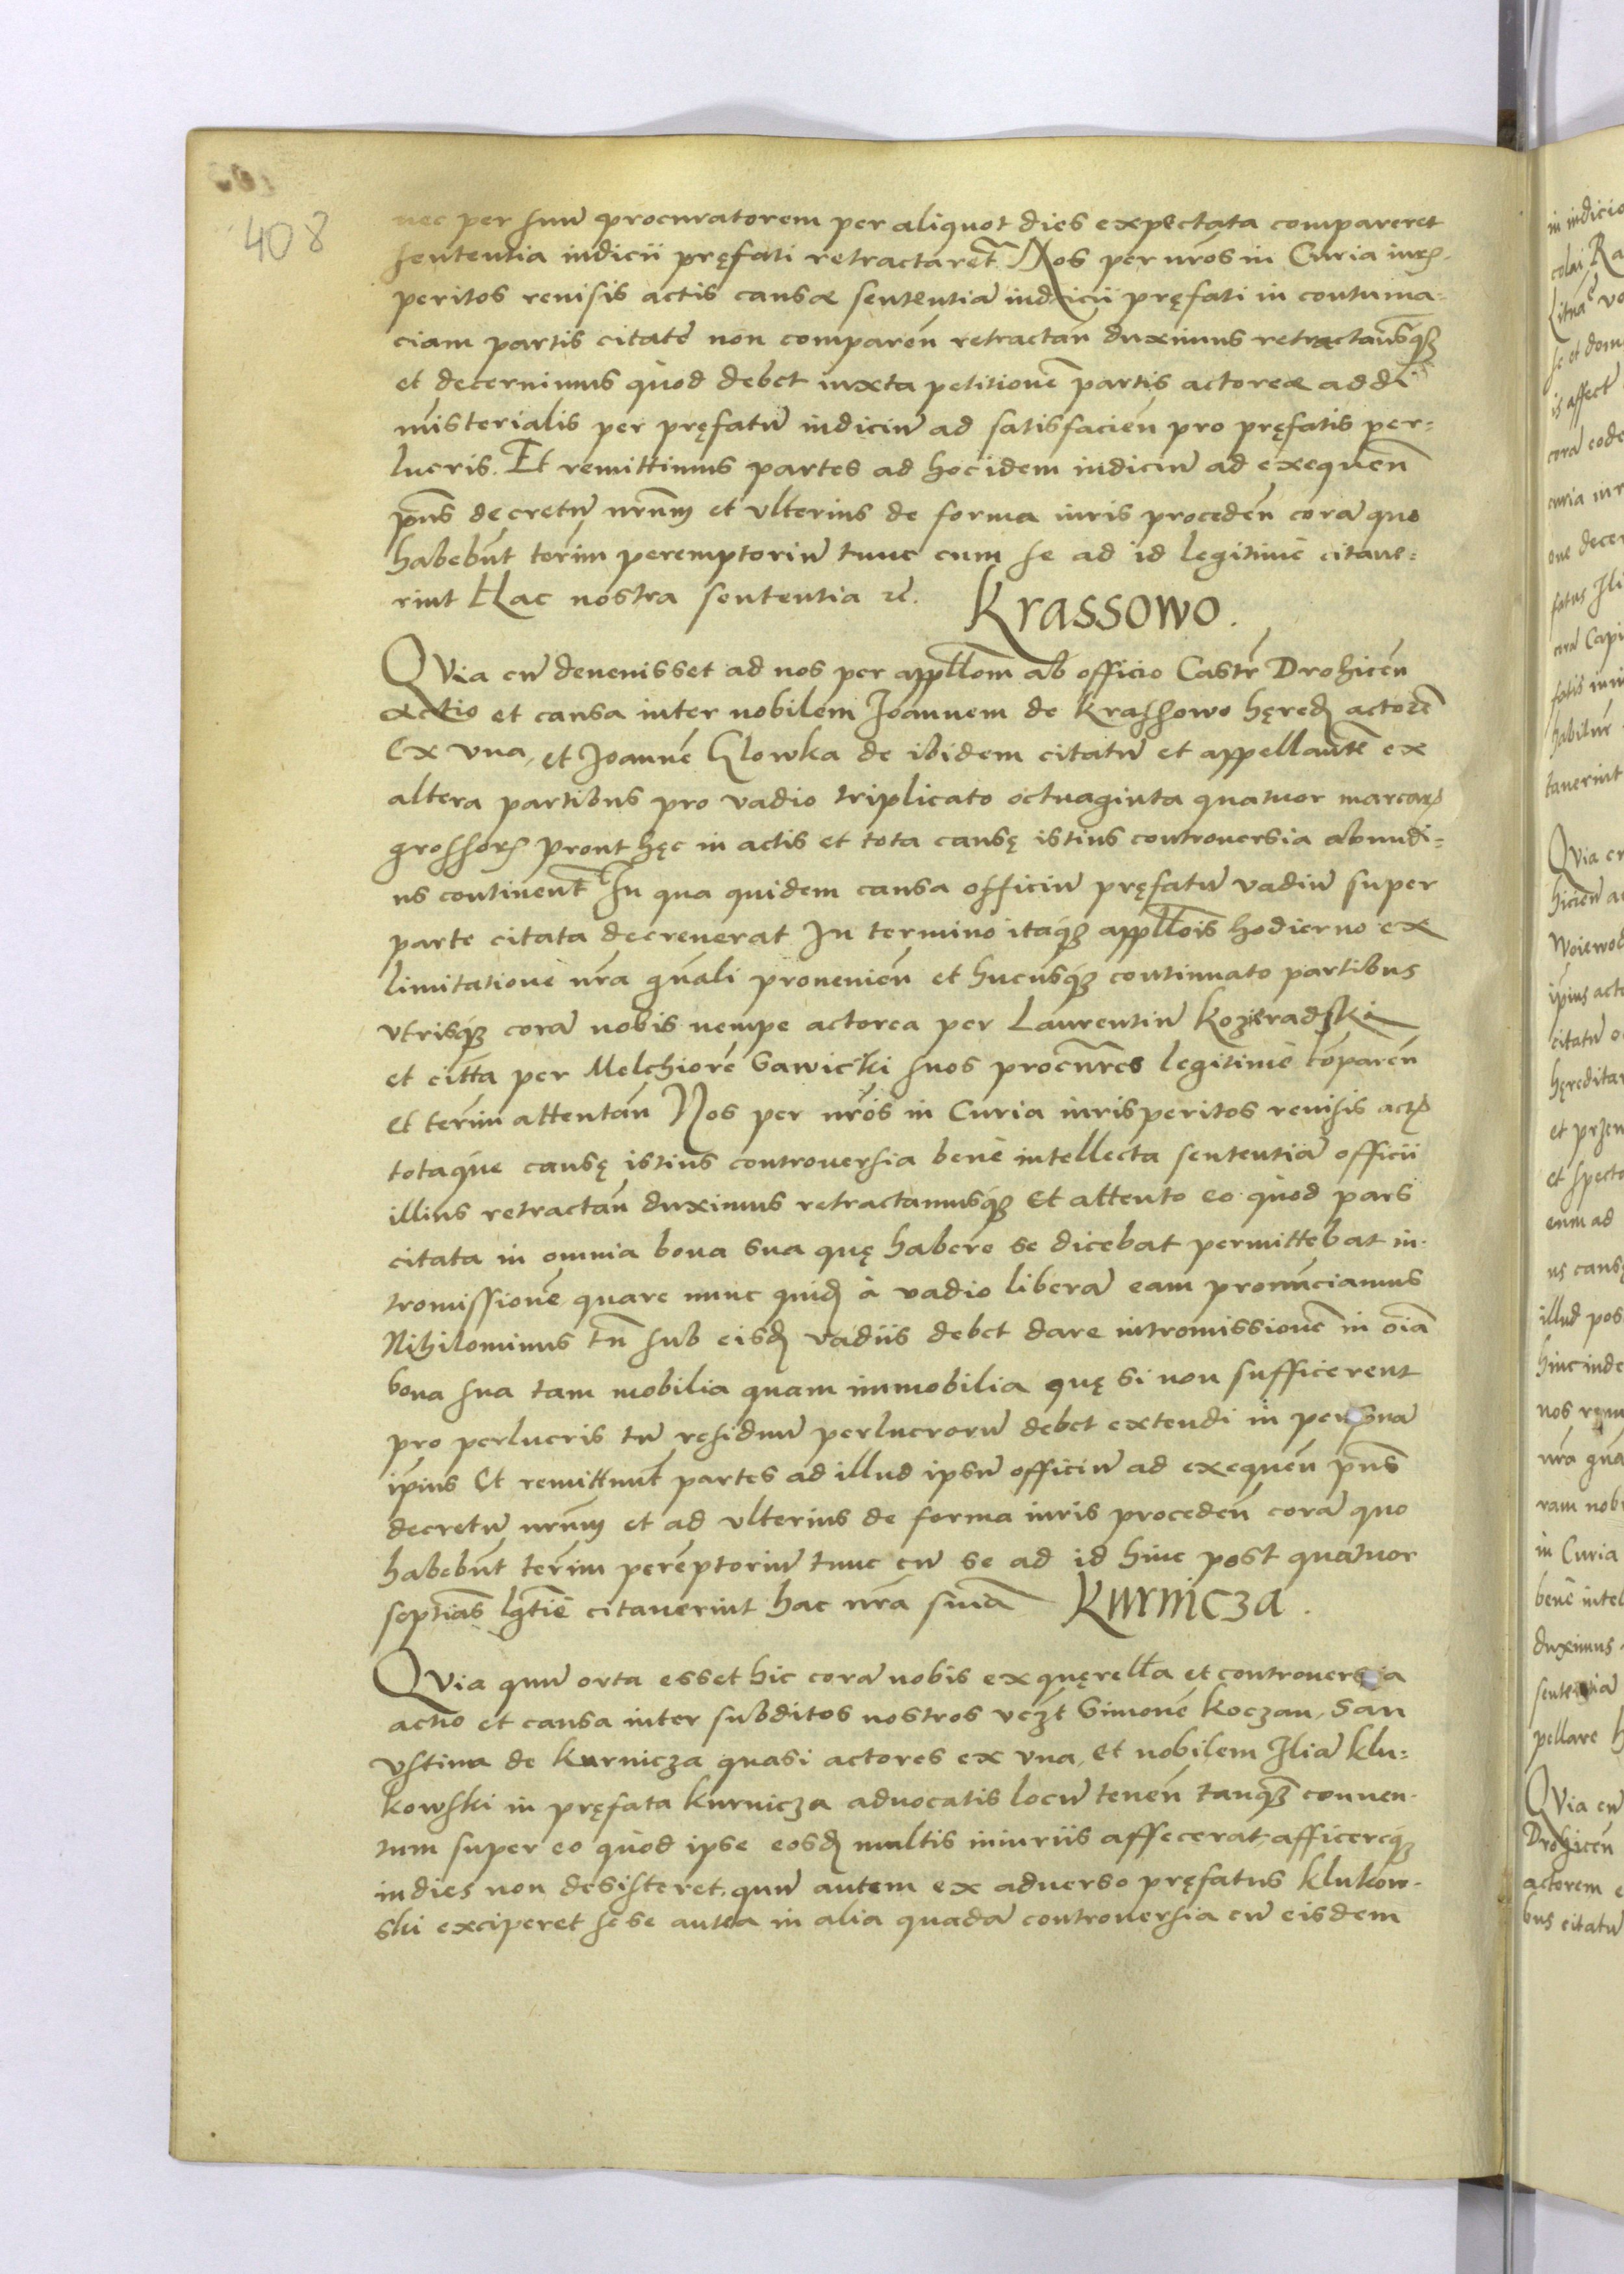 408
nec per suũ procuratorem per aliquot dies expectata compareret
sententia iudicii pręfati retractaret̃ Nos per nr̃os in Curia iur̃
peritos reuisis actis causæ sententiã iudicii pręfati in contuma=
ciam partis citatę non comparen̄ retractan̄ duximus retractamusq3
et decernimus quòd debet iuxta petitionẽ partis actoreæ addi
misterialis per pręfatũ iudiciũ ad satisfacien̄ pro pręfatis per=
lucris. Et remittimus partes ad hoc idem iudiciũ ad exequen̄
pñs decretũ nr̃um et vlterius de forma iuris proceden̄ corã quo
habebũt term̃ peremptoriũ tunc cum se ad id legitimè citaue=
rint Hac nostra sententia zc̃.
Krassowo.
QVia cũ deuenisset ad nos per appll̃om ab officio Castr̃ Drohicen̄
actio et causa inter nobilem Joannem de Krassowo hęred̃ actorẽ
Ex vna, et Joannẽ Glowka de ibidem citatũ et appellantẽ ex
altera partibus pro vadio triplicato octuaginta quatuor marcar̃
grossor̃ Prout hęc in actis et tota causę istius controuersia abundi=
us continent̃ In qua quidem causa officiũ pręfatũ vadiũ super
parte citata decreuerat In termino itaq3 appll̃ois hodierno ex
limitatione nr̃a gñali prouenien̄ et hucusq3 continuato partibus
vtrisq3 corã nobis nempe actorea per Laurentiũ Kozieradski
et citt̃a per Melchiorẽ Sawicki suos procur̃es legitimè cõparen̄
et term̃ attentan̄ Nos per nr̃os in Curia iurisperitos reuisis act̃
totaque causę istius controuersia benè intellecta sententiã officii
illius retractan̄ duximus retractamusq3 Et attento eo quòd pars
citata in omnia bona sua quę habere se dicebat permittebat in-
tromissionẽ quare nunc quid̃ à vadio liberã eam pronũciamus
Nihilominus tñ sub eisd̃ vadiis debet dare intromissionẽ in oĩa
bona sua tam mobilia quam immobilia quę si non sufficerent
pro perlucris tũ residuũ perlucrorũ debet extendi in personã
ip̃ius Et remittunt̃ partes ad illud ipsũ officiũ ad exequen̄ pñs
decretũ nr̃um et ad vlterius de forma iuris proceden̄ corã quo
habebũt term̃ perẽptoriũ tunc cũ se ad id hinc post quatuor
septĩas lg̃timè citauerint hac nr̃a sñia
Kurnicza.
QVia quũ orta esset hic corã nobis ex quęrell̃a et controuersia
actio et causa inter subditos nostros vczt̃ Simonẽ Koczan, San
vstina de Kurnicza quasi actores ex vna, et nobilem Iliã Klu=
kowski in pręfata Kurnicza aduocatis locũ tenen̄ tanq3 conuen-
tum super eo quòd ipse eosd̃ multis iniuriis affecerat, afficereq3
indies non desisteret, quũ autem ex aduerso pręfatus Klukow-
ski exciperet sese antea in alia quadã controuersia cũ eisdem